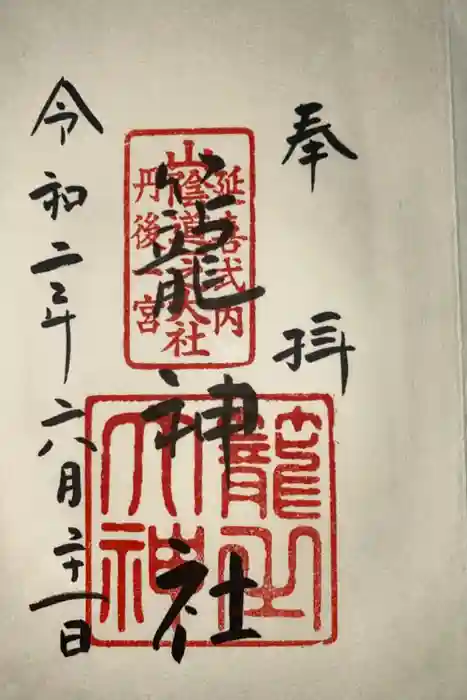 奉拝
延喜式内
山陰道之大社
丹後一宮
籠神社
籠之
大神
令和二年六月二十一日